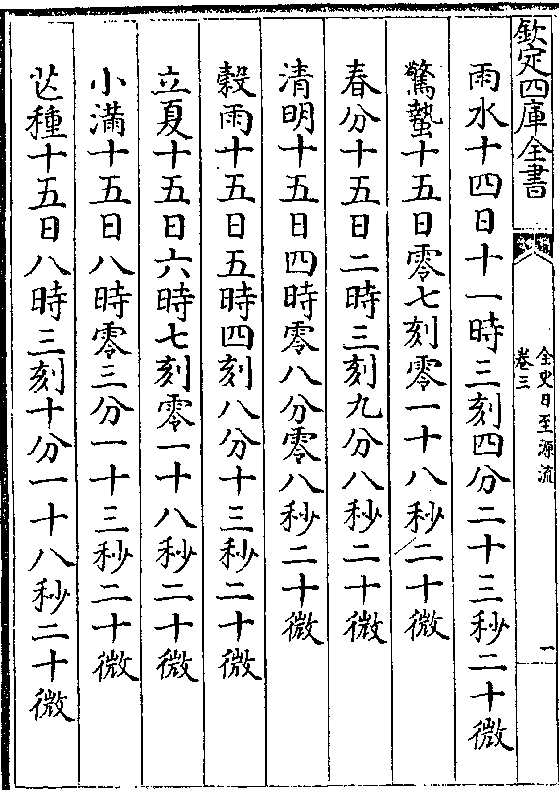 欽定四庫全書
全史日至源流
卷三
一
雨水十四日十一時三刻四分二十三秒二十微
驚蟄十五日零七刻零一十八秒二十微
春分十五日二時三刻九分八秒二十微
清明十五日四時零八分零八秒二十微
穀雨十五日五時四刻八分十三秒二十微
立夏十五日六時七刻零一十八秒二十微
小滿十五日八時零三分一十三秒二十微
芒種十五日八時三刻十分一十八秒二十微